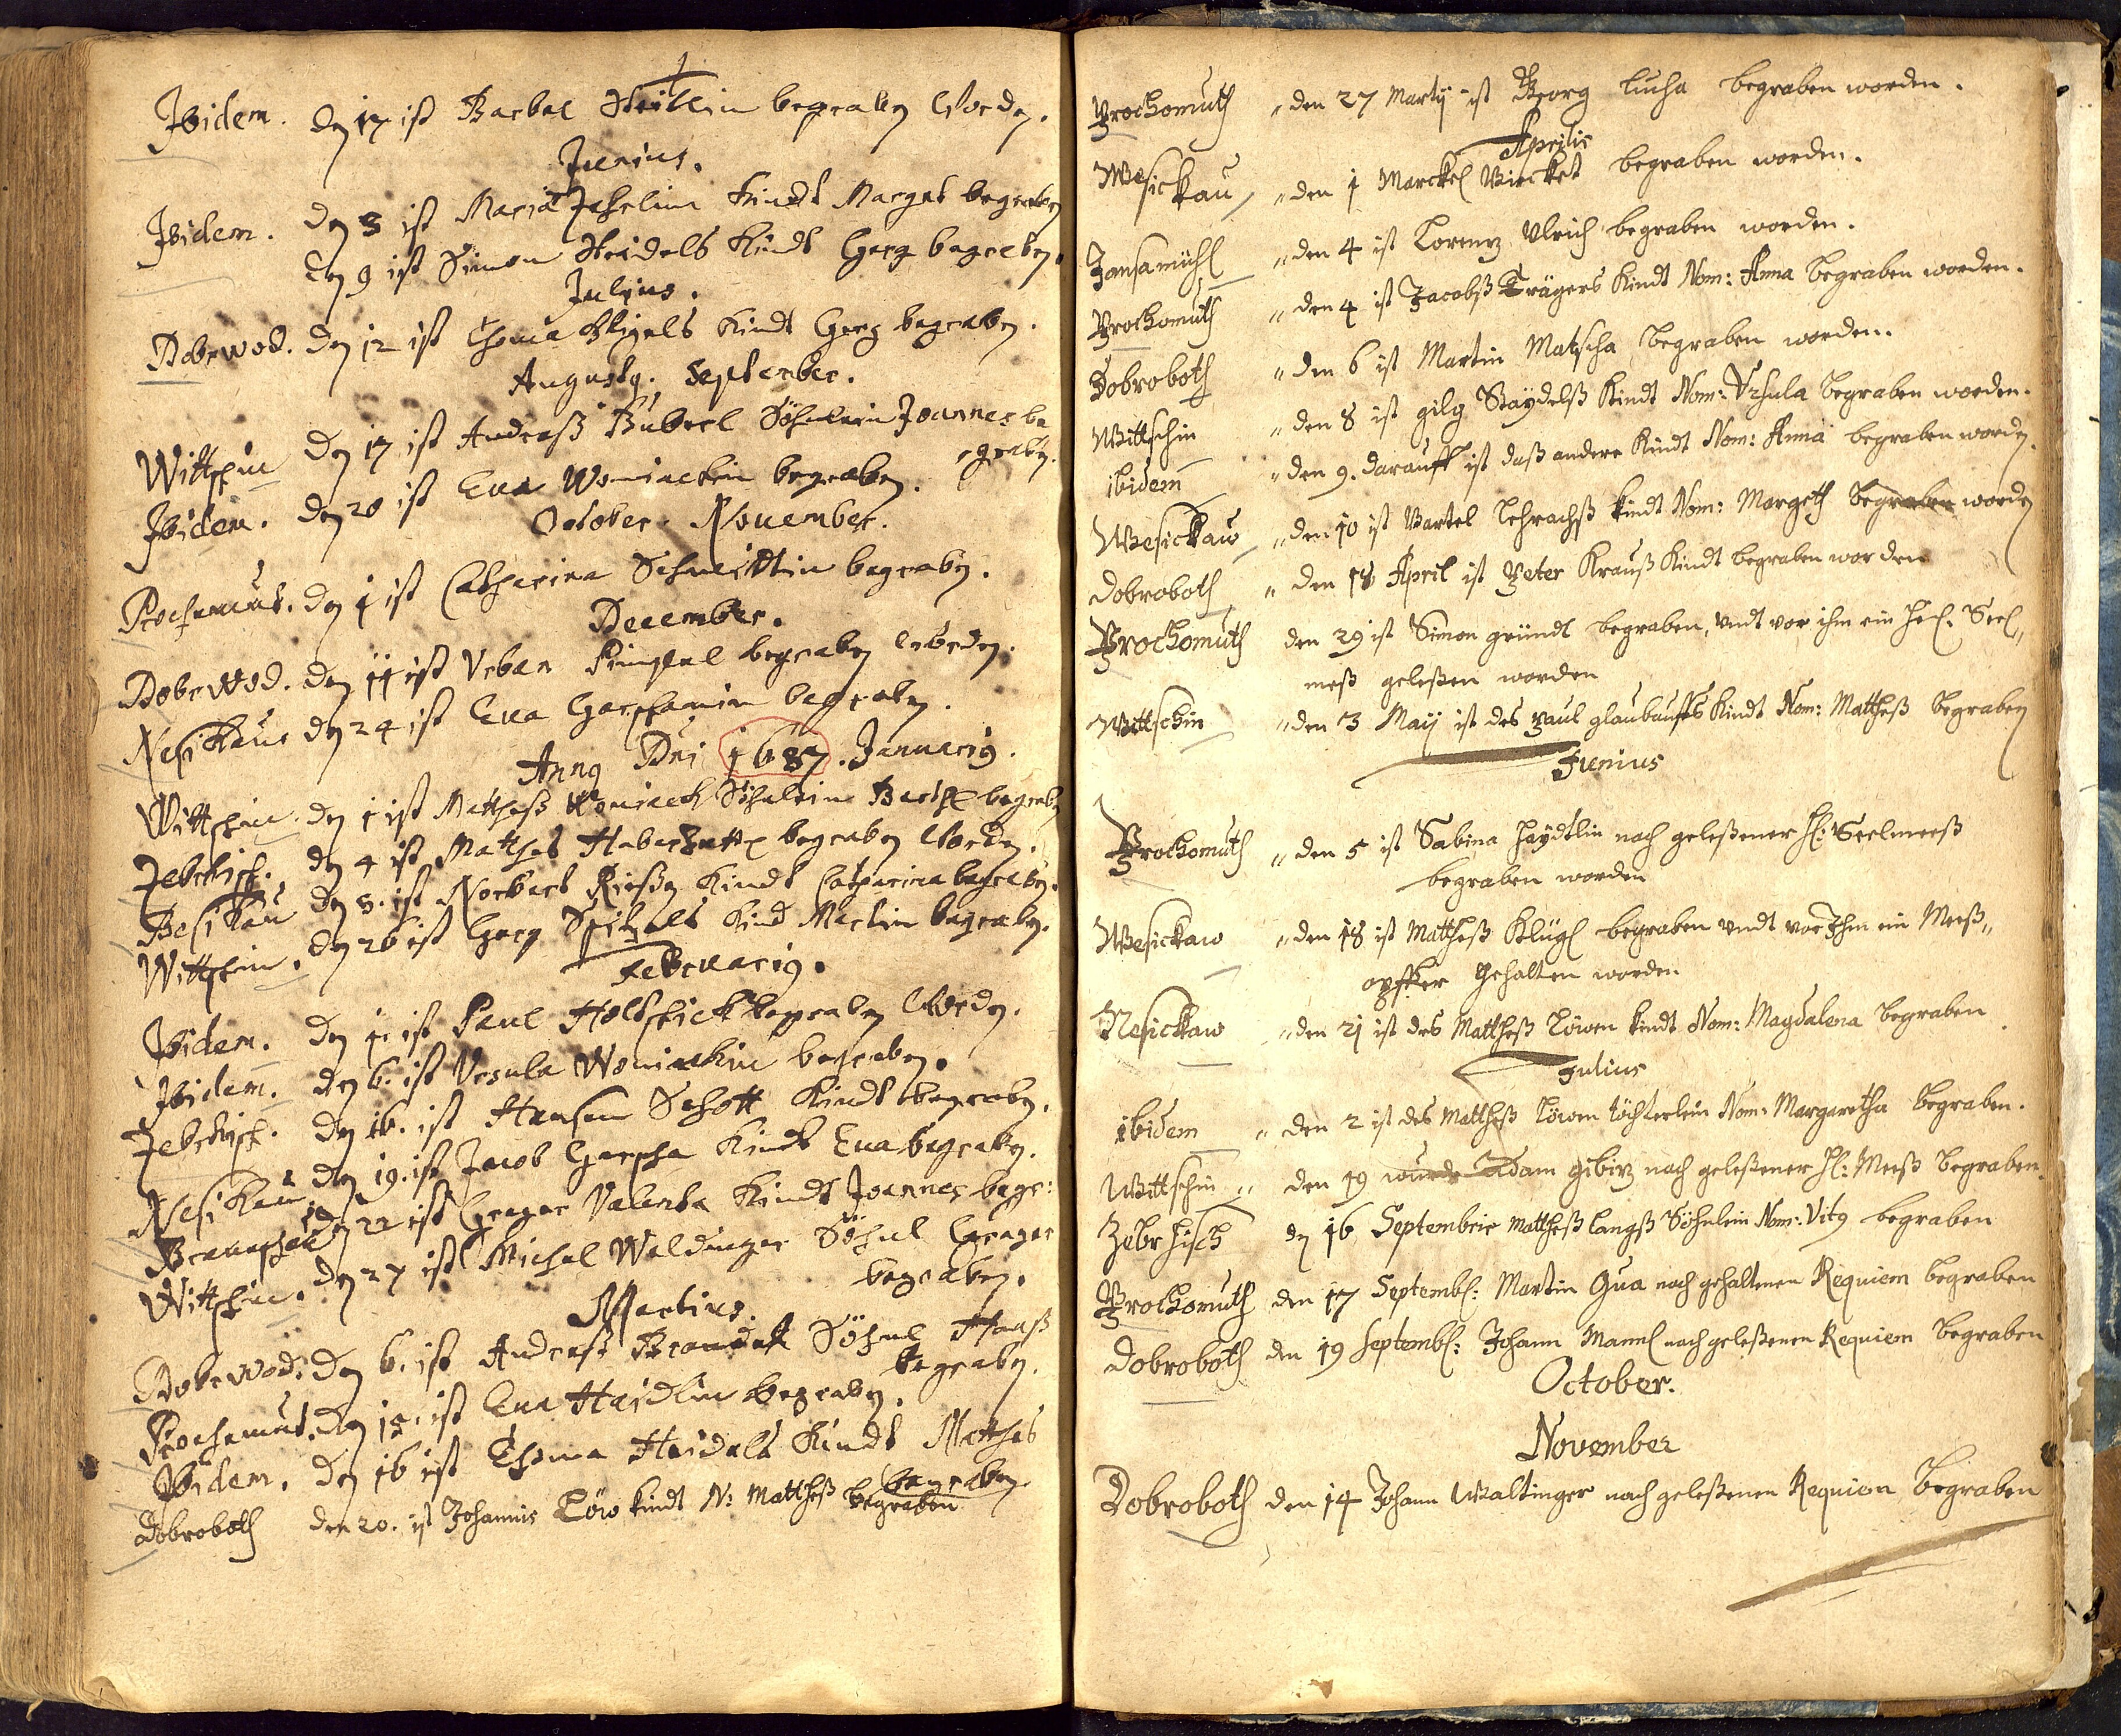 Ibidem. den 17 ist Barbal Heitlin begraben Worden.
Junius.
Ibidem. den 3 ist Maria Kindt Marget begraben
den 9 ist Simon Heidels Kindt Georg begraben.
Julius.
Dobrwod. den 12 ist Thoma Kindt Georg begraben.
Augusty. September.
Wittschin den 17 ist Andreaß Buberl Söhnlein Joannes be
graben.
Ibidem. den 20 ist Eua Woniackin begraben.
October. Nouember.
Prochomut. den 1 ist Catharina Schneidtlin begraben.
December.
Dobrwod. den 11 ist Vrban begraben worden.
Nesikau den 24 ist Eua Garschamin begraben.
Anno Dni 1687. Januarius.
Wittschin. den 1 ist Mattheß Woniack Söhnlein Barthl begraben
Zebrhisch. den 4 ist Mathes begraben Worden.
Besikau den 8. ist Norbert Kindt Catharina begraben.
Wittschin. den 26 ist Georg Spitzels Kind Martin begraben.
Februarius.
Ibidem. den 1 ist Paul begraben Worden.
Ibidem. den 6. ist Vrsula Woniackin begraben.
Zebrhisch. den 16. ist Hansen Schott Kindt begraben.
Nesikau den 19. ist Jacob Garscha Kindt Eua begraben.
den 22 ist Gregor Valenta Kindt Joannes begr:
Wittschin. den 27 ist Michel Waldinger Söhnl Gregor
begraben.
Martius.
Dobrwod. den 6. ist Andreaß Söhnl Hanß
begraben.
Prochomut. den 15. ist Eua Haidlin begraben.
Ibidem. den 16 ist Thoma Heidels Kindt Matthes
begraben.
Dobroboth den 20. ist Johannis Löw kindt N: Mattheß begraben
Prochomuth „ den 27 Martij ist Georg Lucha begraben worden.
Aprilis
Wesickau „ den 1 Marckel Wircket begraben worden.
Hansamühl „ den 4 ist Lorentz Vlrich begraben worden.
Prochomuth „ den 4 ist Jacobß Trägers Kindt Nom: Anna begraben worden.
Dobroboth „ den 6 ist Martin Matscha begraben worden.
Wittschin „ den 8 ist gilg Staydelß Kindt Nom: Vrsula begraben worden.
ibidem „ den 9. darauff ist daß andere Kindt Nom: Anna begraben worden.
Wesickaw „ den 10 ist Bartel Lehrachß kindt Nom: Margeth begraben worden
Dobroboth „ den 18 April ist Peter Krauß Kindt begraben worden
Prochomuth den 29 ist Simon gründl begraben, undt vor ihm ein Seel„
meß geleßen worden
Wittschin „ den 3 Maij ist des Paul glaubaufs Kindt Nom: Mattheß begraben
Junius
Prochomuth „ den 5 ist Sabina Haydtlin nach geleßener Hl: Seelmeeß
begraben worden
Wesickaw „ den 18 ist Mattheß Klügl begraben undt vor Ihm ein Meeß„
opffer gehalten worden
Nesickaw „ den 21 ist des Mattheß Löwen kindt Nom: Magdalena begraben
Julius
ibidem „ den 2 ist des Mattheß Löwen töchterlein Nom: Margaretha begraben.
Wittschin „ den 19 wurde Adam gibitz nach geleßener Hl: Meeß begraben
Zebrhisch den 16 Septembris Mattheß langß Söhnlein Nom: Vitus begraben
Prochomuth den 17 Septembl: Martin Gua nach gehaltenen Requiem begraben
Dobroboth den 19 Septembl: Johann Mannl nach geleßenen Requiem begraben
October.
November
Dobroboth den 14 Johann Waltinger nach geleßenen Requiem begraben